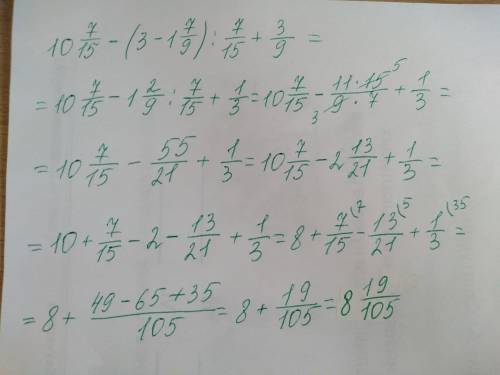 10 7/15 - (3 - 1 7/9) : 7/15 + 3/9 =
= 10 7/15 - 1 2/9 : 7/15 + 1/3 = 10 7/15 - 11 · 15 5 / 3 9 · 7 + 1/3 =
= 10 7/15 - 55/21 + 1/3 = 10 7/15 - 2 13/21 + 1/3 =
= 10 + 7/15 - 2 - 13/21 + 1/3 = 8 + 7/15 (7 - 13/21 (5 + 1/3 (35 =
= 8 + 49 - 65 + 35 / 105 = 8 + 19/105 = 8 19/105